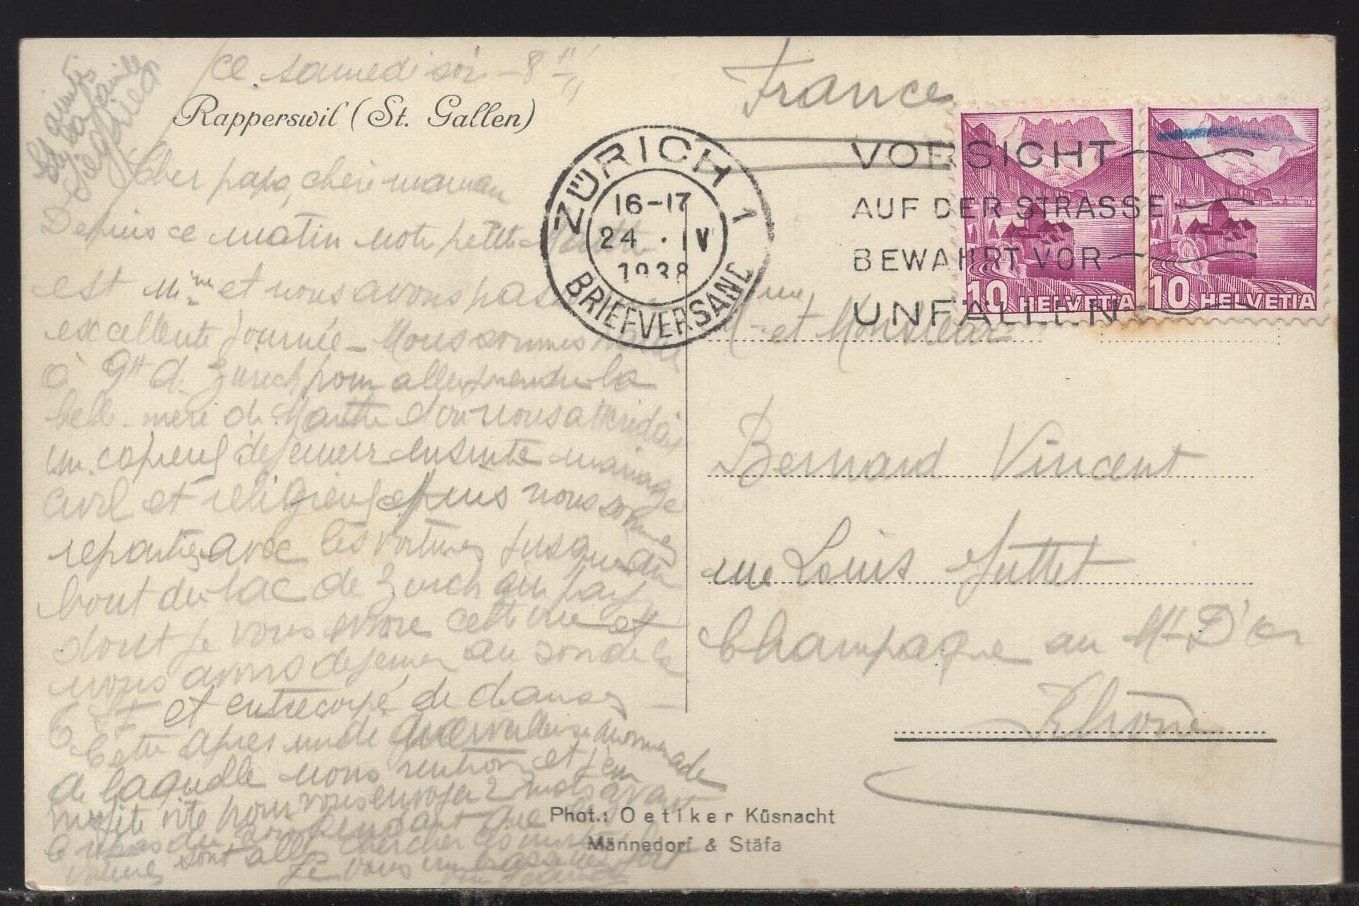 ce samedi soir - 8 H
Rapperswil (St. Gallen)
et la famille
Siegfried
Cher papa, chère maman
Depuis ce matin notre petite
est Mme et nous avons passé
excellente journée - Nous sommes
à 9H de Zurich pour aller prendre la
belle mère de Marthe d'où nous attendait
un copieux dejeuner ensuite mariage
civil et religieux et puis nous sommes
repartis avec les voitures jusqu'au
bout du lac de Zurich
dont je vous envoie cette vue et
nous avons dejeuner au son de la
T S F et entrecoupé de danses -
Cette après midi merveilleuse promenade
de laquelle nous rentrons et j'en
profite vite pour vous envoyer 2 mots avant
le repas du soir pendant que
voitures sont allé chercher
Je vous
France
ZÜRICH 1
16-17
24 . IV
1938
BRIEFVERSAND
VORSICHT
AUF DER STRASSE
BEWAHRT VOR
UNFÄLLEN
10 HELVETIA
10 HELVETIA
Mme et Monsieur
Bernard Vincent
rue Louis Juttet
Champagne au Mt D'or
Rhône
Phot.: Oetiker Küsnacht
Männedorf & Stäfa